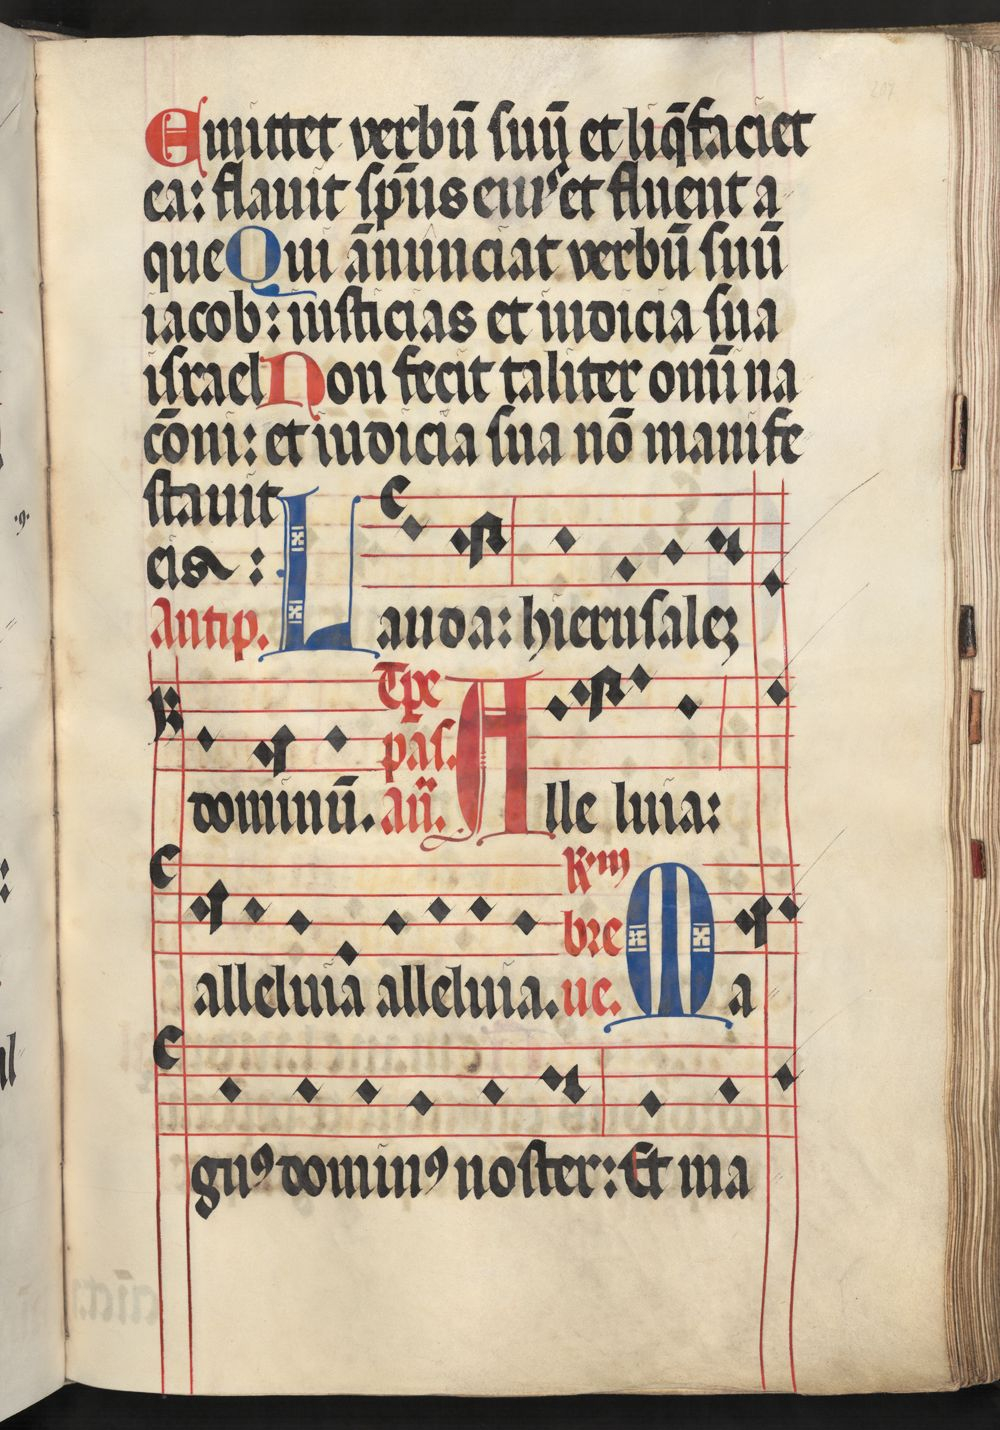 Emittet verbū suū et liq̄faciet
ea: flauit sp̄us eiuˢ et fluent a
que Qui ānunciat verbū suū
iacob: iusticias et iudicia sua
israel Non fecit taliter om̄i na
cōni: et iudicia sua nō manife
stauit
eis:
Antip. Lauda: hierusaleꝫ
dominū. Tpe pas. añ. Alle luia:
alleluia alleluia. R. m bre ue. Ma
gnꝰ dominꝰ noster: Et ma
207